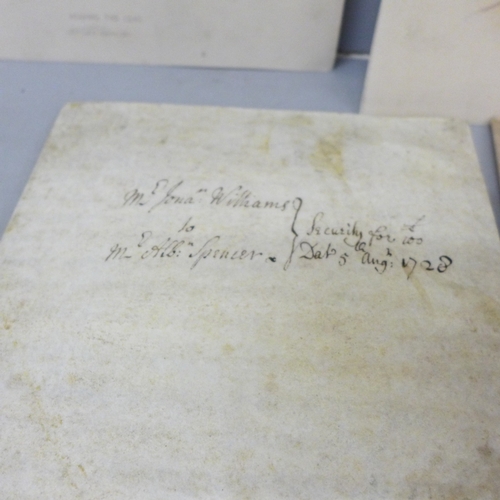 Mr Jonan Williams
to
Mr Albn Spencer
Security for £
Dat 5th Augt: 1728